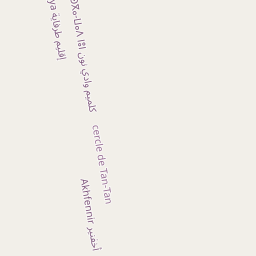 ya إقليم طرفاية
ⵡⴰⴷ ⵏⵓⵏ كلميم وادي نون
cercle de Tan-Tan
Akhfennir أخفنير